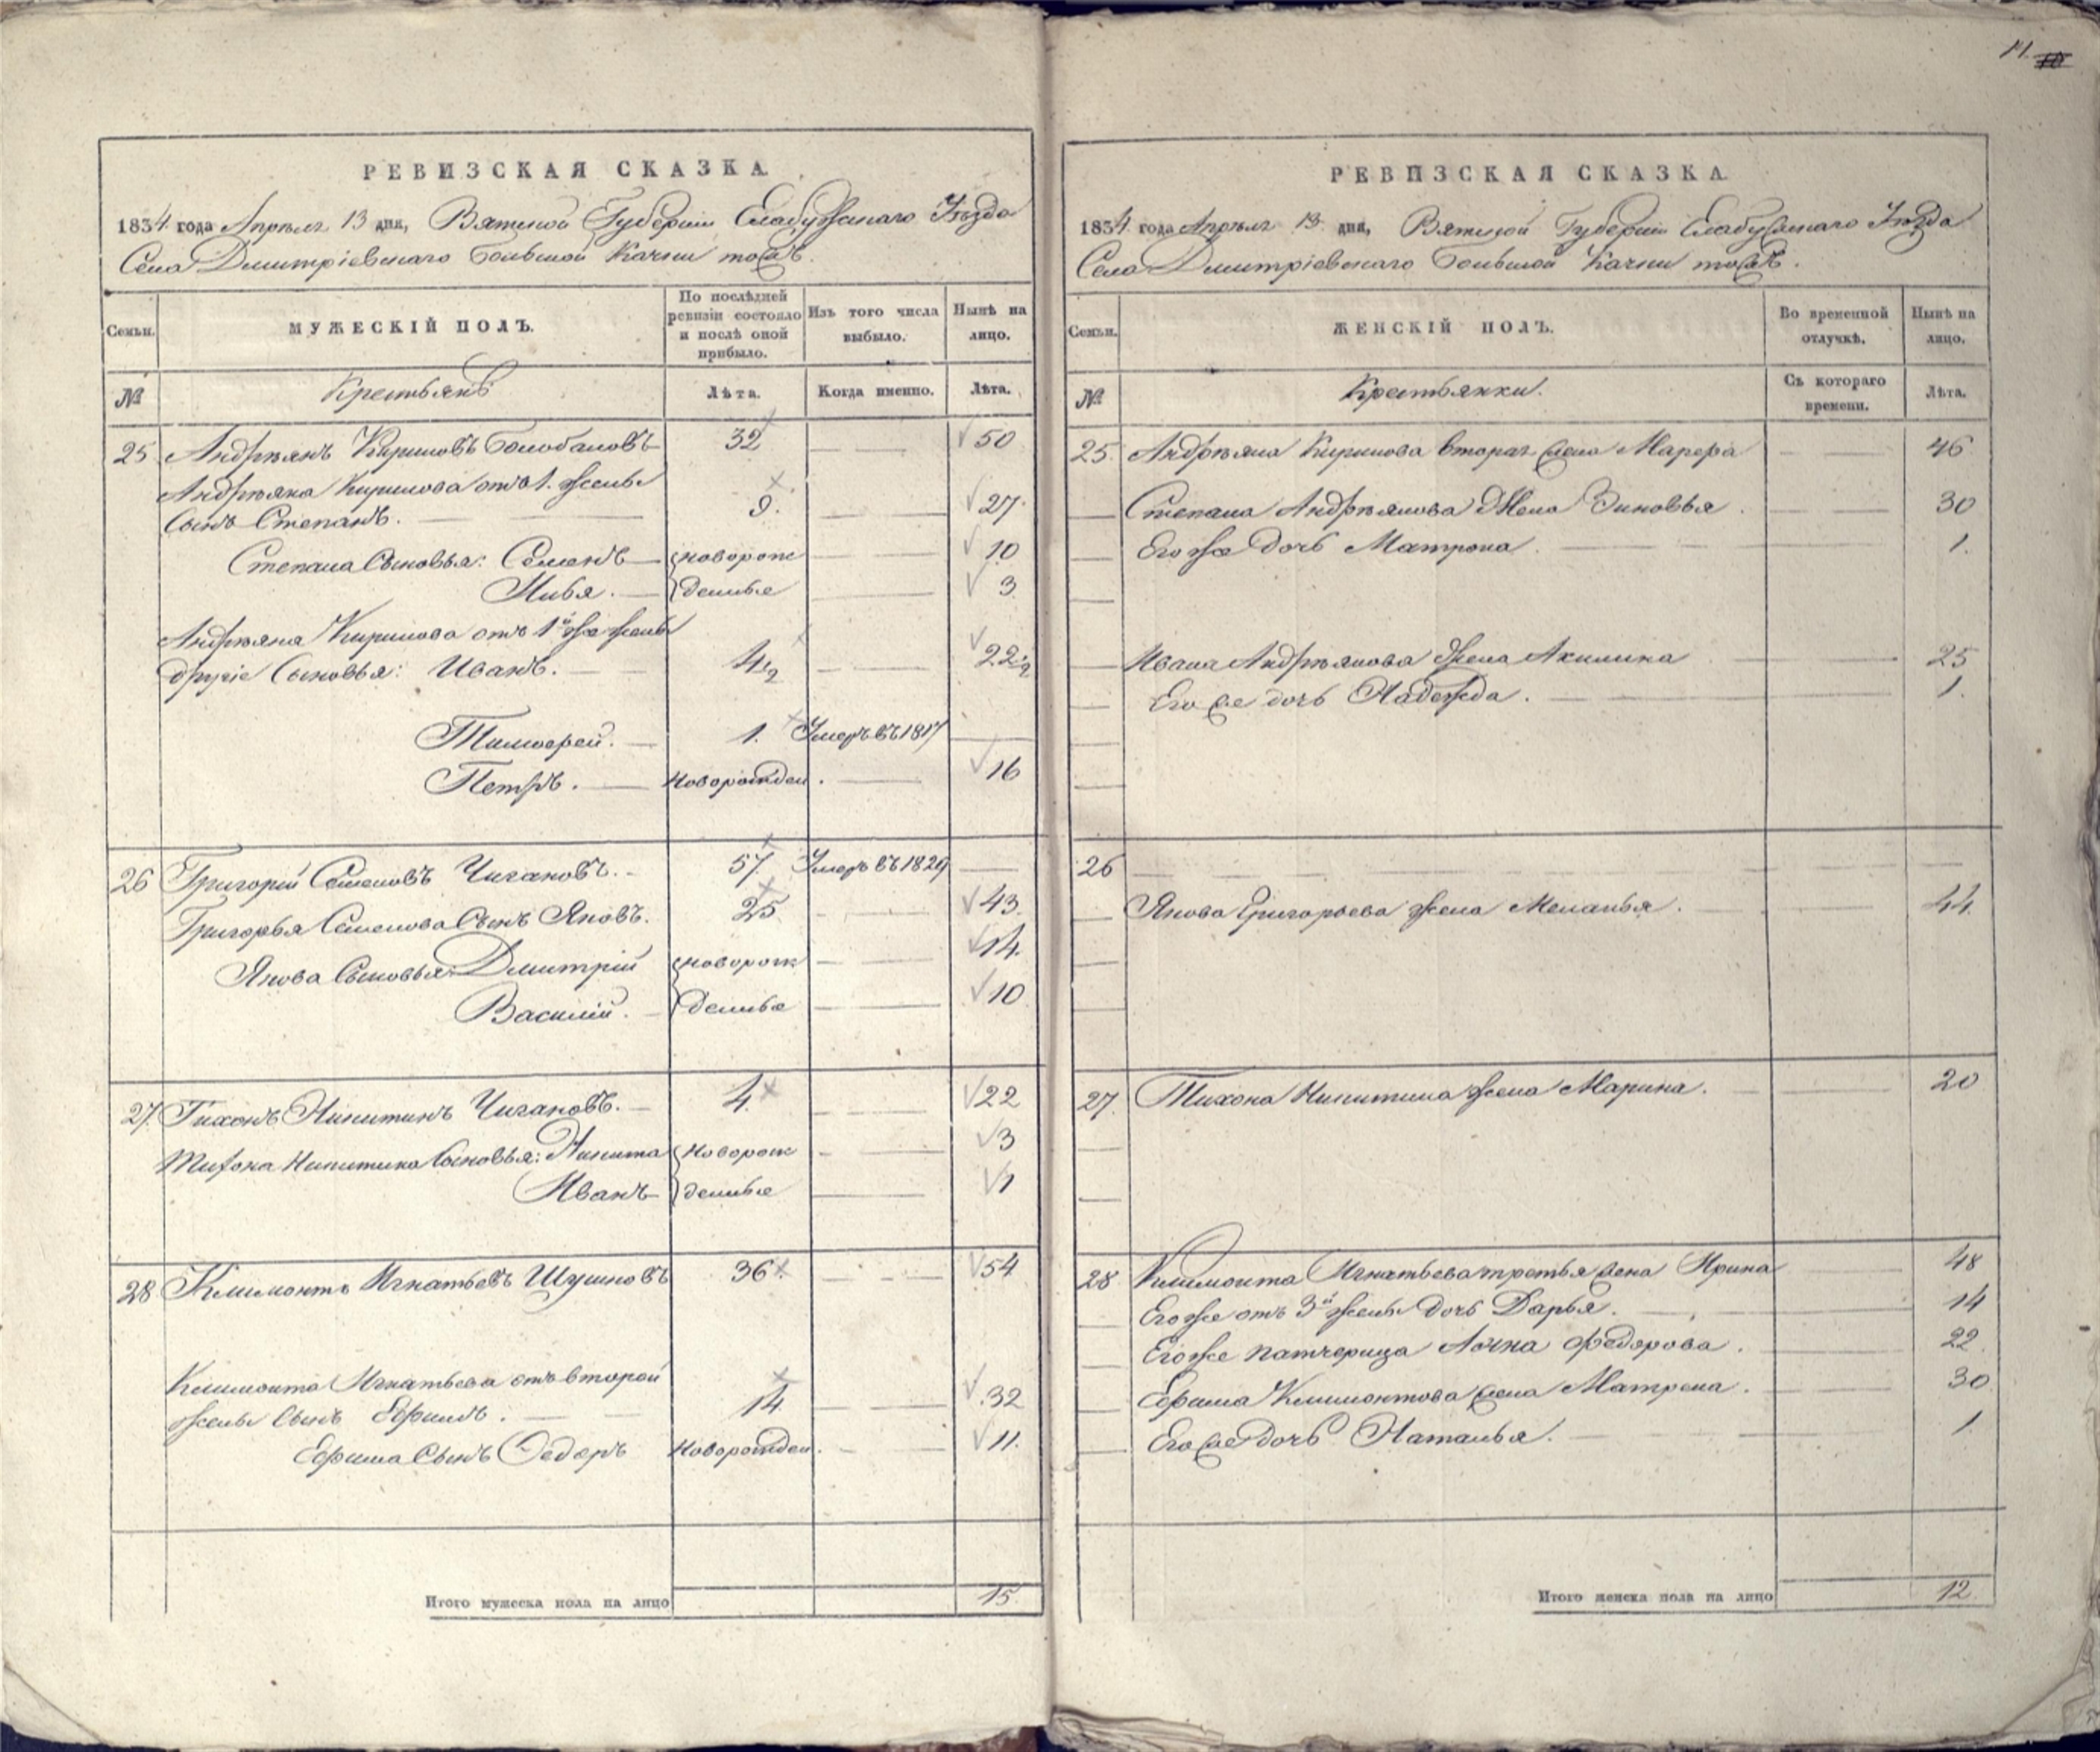 11. 10
РЕВИЗСКАЯ СКАЗКА.
1834 года Апрѣля 13 дня, Вятской Губерніи Елабужскаго Уѣзда
Села Дмитріевскаго Большой Качки тожъ.
Семьи.
МУЖЕСКІЙ ПОЛЪ.
По послѣдней ревизіи состояло и послѣ оной прибыло.
Изъ того числа выбыло.
Нынѣ на лицо.
№
Крестьянъ
Лѣта.
Когда именно.
Лѣта.
25 Андрѣянъ Кириловъ 32 50
Андрѣяна Кирилова отъ 1. жены
сынъ Степанъ. 9. 27.
Степана сыновья: Семенъ новорож 10
Илья. денные 3
Андрѣяна Кирилова отъ 1й же жены
другіе сыновья: Иванъ. 4½ 22½
Тимоѳей. 1. Умеръ въ 1817
Петръ. Новорожден. 16
26 Григорій Семеновъ Чигановъ. 57 Умеръ въ 1829
Григорья Семенова сынъ Яковъ. 25 43.
Якова сыновья: Дмитрій новорож 14.
Василій. денные 10
27. Тихонъ Никитинъ Чигановъ. 4. 22
Тихона Никитина сыновья: Никита новорож 3
Иванъ денные 1
28 Климонтъ Игнатьевъ Шушковъ 36. 54
Климонта Игнатьева отъ второй
жены сынъ Ефимъ. 14. 32
Ефима сынъ Ѳедоръ Новорожден. 11.
Итого мужеска пола на лицо 15.
РЕВИЗСКАЯ СКАЗКА.
1834 года Апрѣля 13 дня, Вятской Губерніи Елабужскаго Уѣзда
Села Дмитріевскаго Большой Качки тожъ.
Семьи.
ЖЕНСКІЙ ПОЛЪ.
Во временной отлучкѣ.
Нынѣ на лицо.
№
Крестьянки.
Съ котораго времени.
Лѣта.
25. Андрѣяна Кирилова вторая жена Марфа 46
Степана Андрѣянова жена Зиновья. 30
Его же дочь Матрона. 1.
Ивана Андрѣянова жена Акилина 25
Его же дочь Надежда. 1.
26
Якова Григорьева жена Меланья. 44.
27. Тихона Никитина жена Марина. 20
28 Климонта Игнатьева третья жена Ирина 48
Его же отъ 3й жены дочь Дарья. 14
Его же патчерица Анна Федорова. 22.
Ефима Климонтова жена Матрена. 30
Его же дочь Наталья. 1
Итого женска пола на лицо 12.